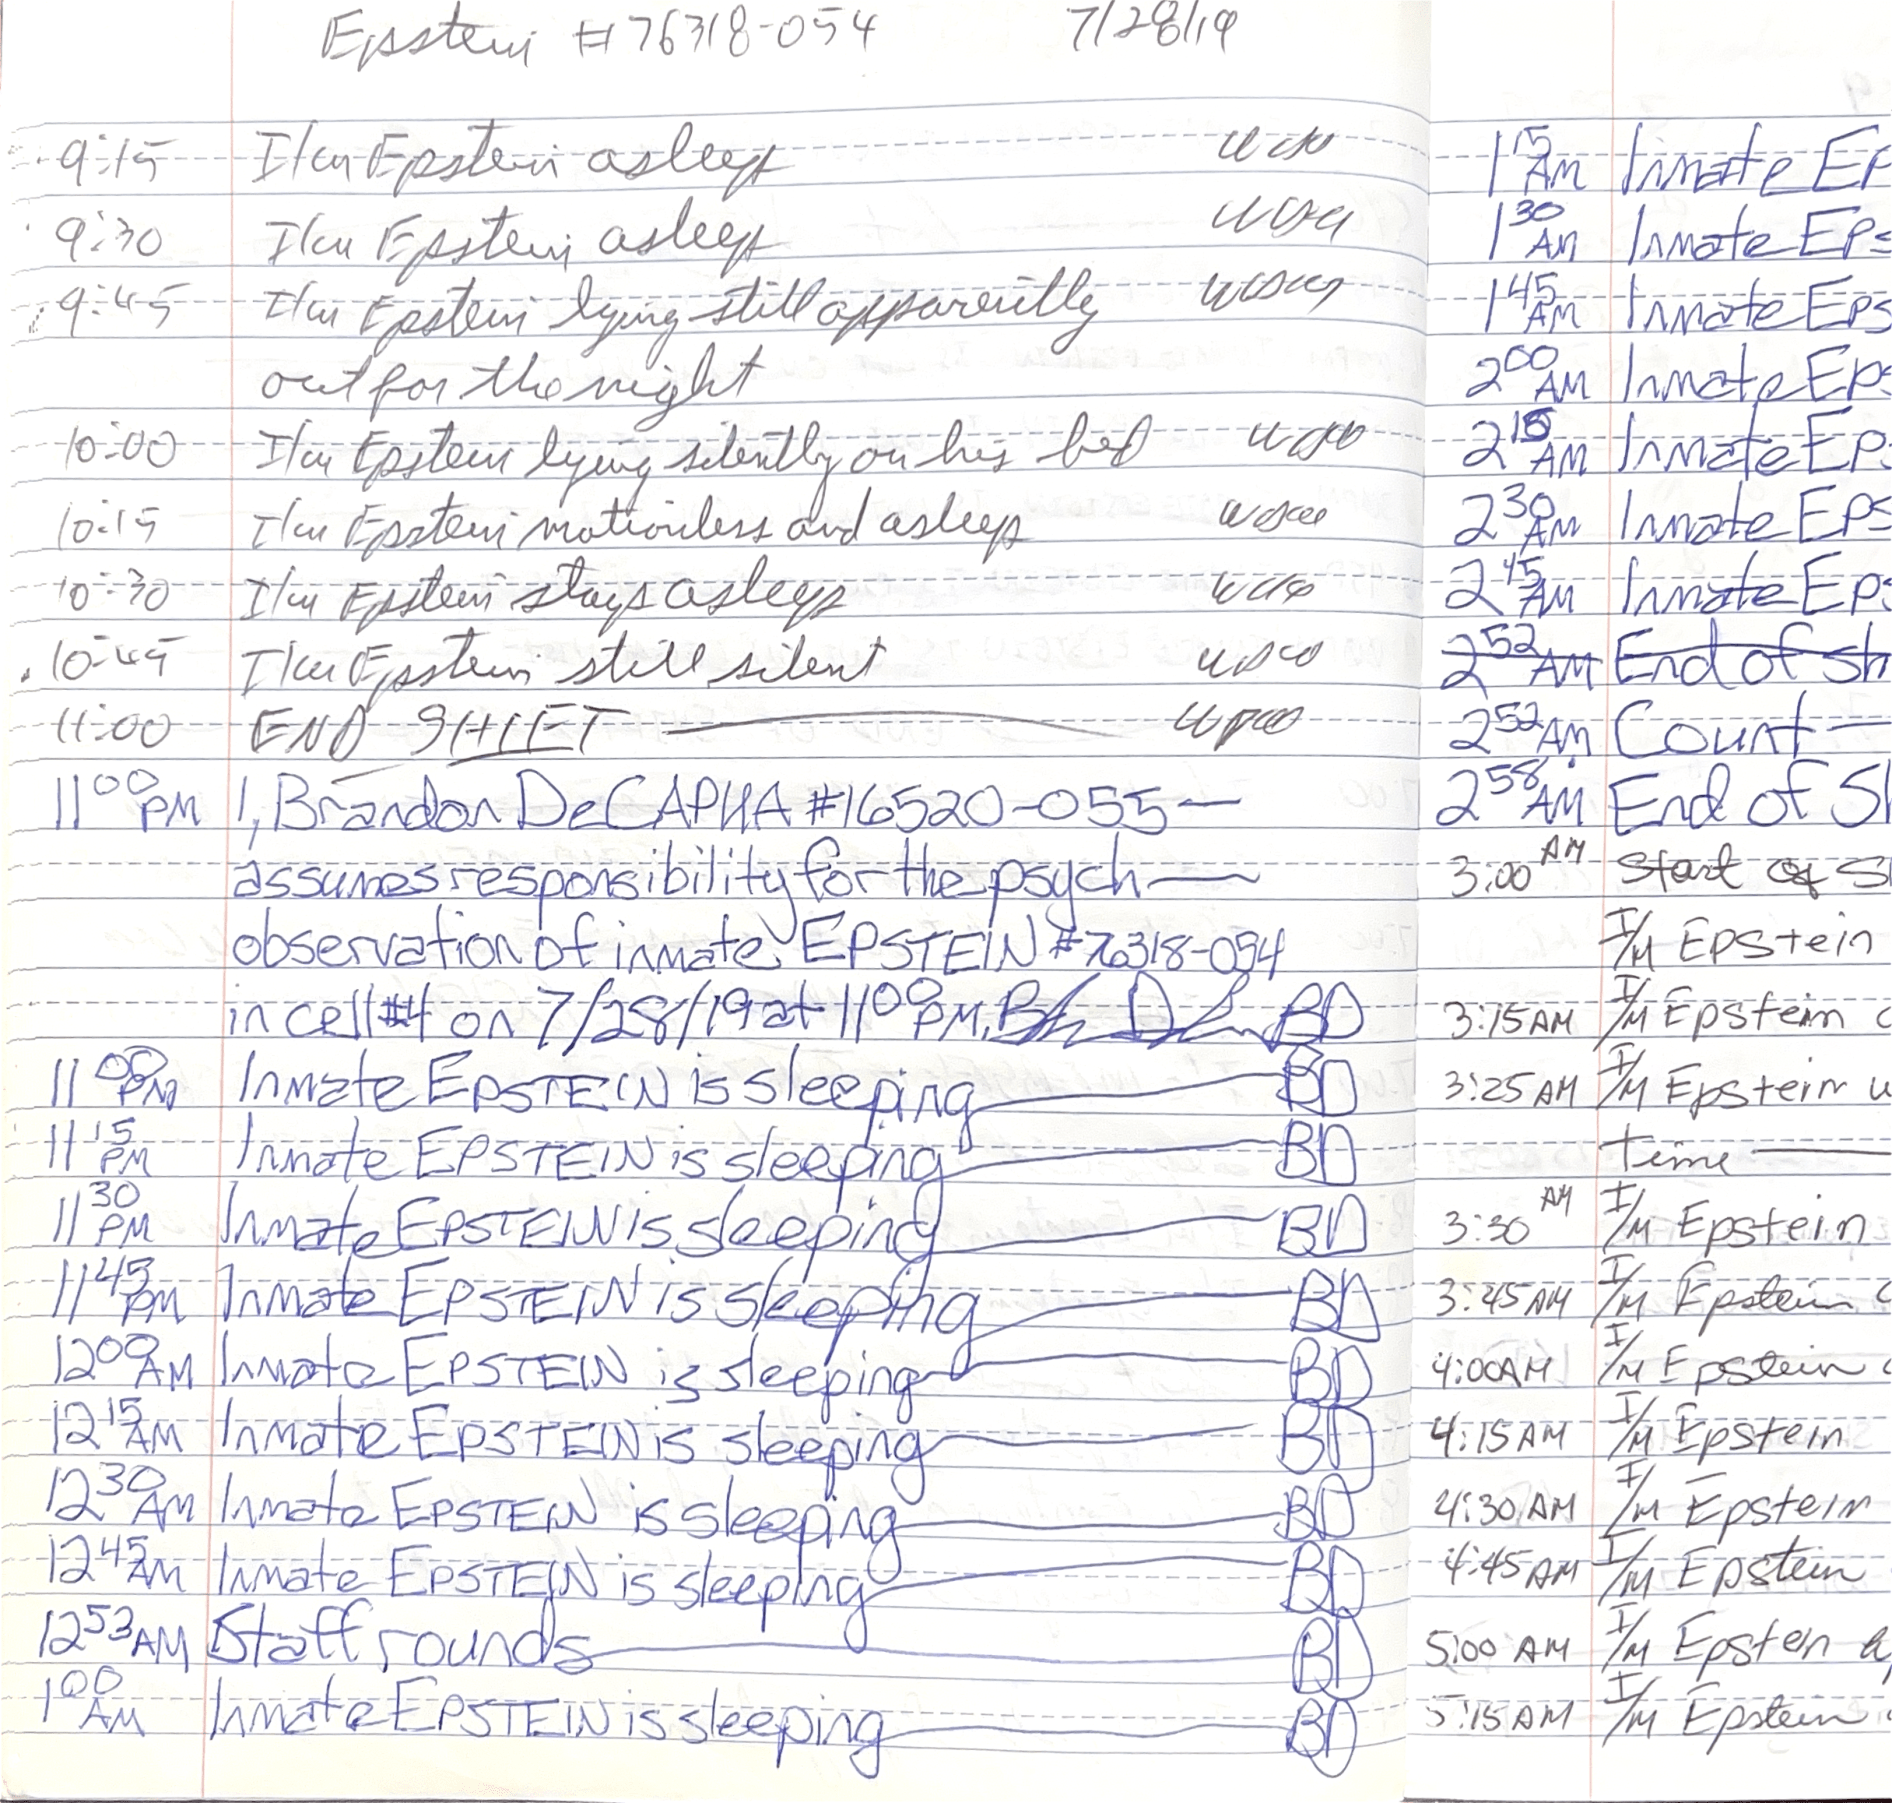 Epstein #76318-054 7/28/19
9:15 I/m Epstein asleep
9:30 I/m Epstein asleep
9:45 I/m Epstein lying still apparently
out for the night
10:00 I/m Epstein lying silently on his bed
10:15 I/m Epstein motionless and asleep
10:30 I/m Epstein stays asleep
10:45 I/m Epstein still silent
11:00 END SHIFT
11:00 PM I, Brandon DeCAPUA #16520-055
assumes responsibility for the psych
observation of inmate EPSTEIN #76318-054
in cell #4 on 7/28/19 at 11:00 PM. BD
11:00 PM Inmate EPSTEIN is sleeping BD
11:15 PM Inmate EPSTEIN is sleeping BD
11:30 PM Inmate EPSTEIN is sleeping BD
11:45 PM Inmate EPSTEIN is sleeping BD
12:00 AM Inmate EPSTEIN is sleeping BD
12:15 AM Inmate EPSTEIN is sleeping BD
12:30 AM Inmate EPSTEIN is sleeping BD
12:45 AM Inmate EPSTEIN is sleeping BD
12:53 AM Staff rounds BD
1:00 AM Inmate EPSTEIN is sleeping BD
1:15 AM Inmate Ep
1:30 AM Inmate Eps
1:45 AM Inmate Eps
2:00 AM Inmate Eps
2:15 AM Inmate Ep
2:30 AM Inmate Eps
2:45 AM Inmate Eps
2:52 AM End of Sh
2:52 AM Count
2:58 AM End of Sh
3:00 AM Start of S
I/M Epstein
3:15 AM I/M Epstein
3:25 AM I/M Epstein
time
3:30 AM I/M Epstein
3:45 AM I/M Epstein
4:00 AM I/M Epstein
4:15 AM I/M Epstein
4:30 AM I/M Epstein
4:45 AM I/M Epstein
5:00 AM I/M Epstein
5:15 AM I/M Epstein